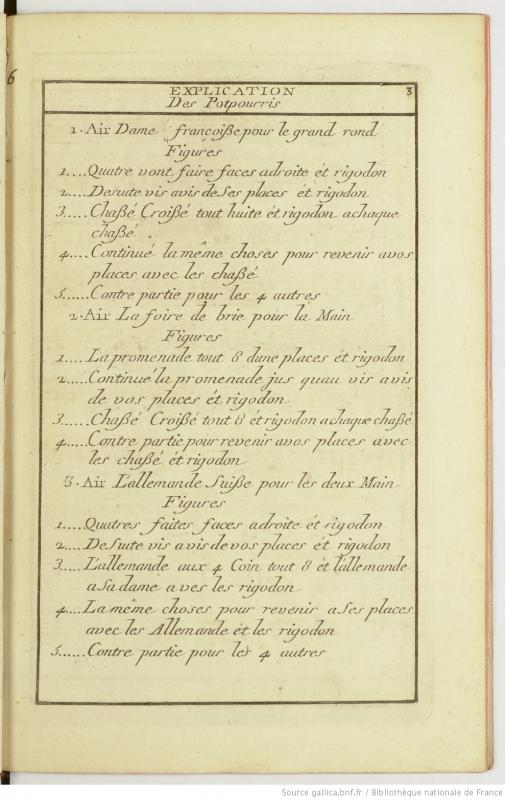 6
EXPLICATION 3
Des Potpourris
1. Air Dame françoiße pour le grand rond
Figures
1.... Quatre vont faire faces adroite ét rigodon
2.... Desuite vis avis de Ses places ét rigodon
3.... Chaßé Croißé tout huite ét rigodon achaque
chaßé.
4.... Continué la même choses pour revenir avos
places avec les chaßé
5...... Contre partie pour les 4 autres
2. Air La foire de brie pour la Main
Figures
1.... La promenade tout 8 dune places ét rigodon
2.... Continué la promenade jus quau vis avis
de vos places ét rigodon
3.... Chaßé Croißé tout 8 ét rigodon achaque chaßé
4.... Contre partie pour revenir avos places avec
les chaßé ét rigodon
3. Air L'allemande Suiße pour les deux Main
Figures
1.... Quatres faites faces adroite ét rigodon
2.... De Suite vis avis de vos places ét rigodon
3.... L'allemande aux 4 Coin tout 8 ét lallemande
aSa dame aves les rigodon
4.... La même choses pour revenir aSes places
avec les Allemande ét les rigodon
5...... Contre partie pour les 4 autres
Source gallica.bnf.fr / Bibliothèque nationale de France